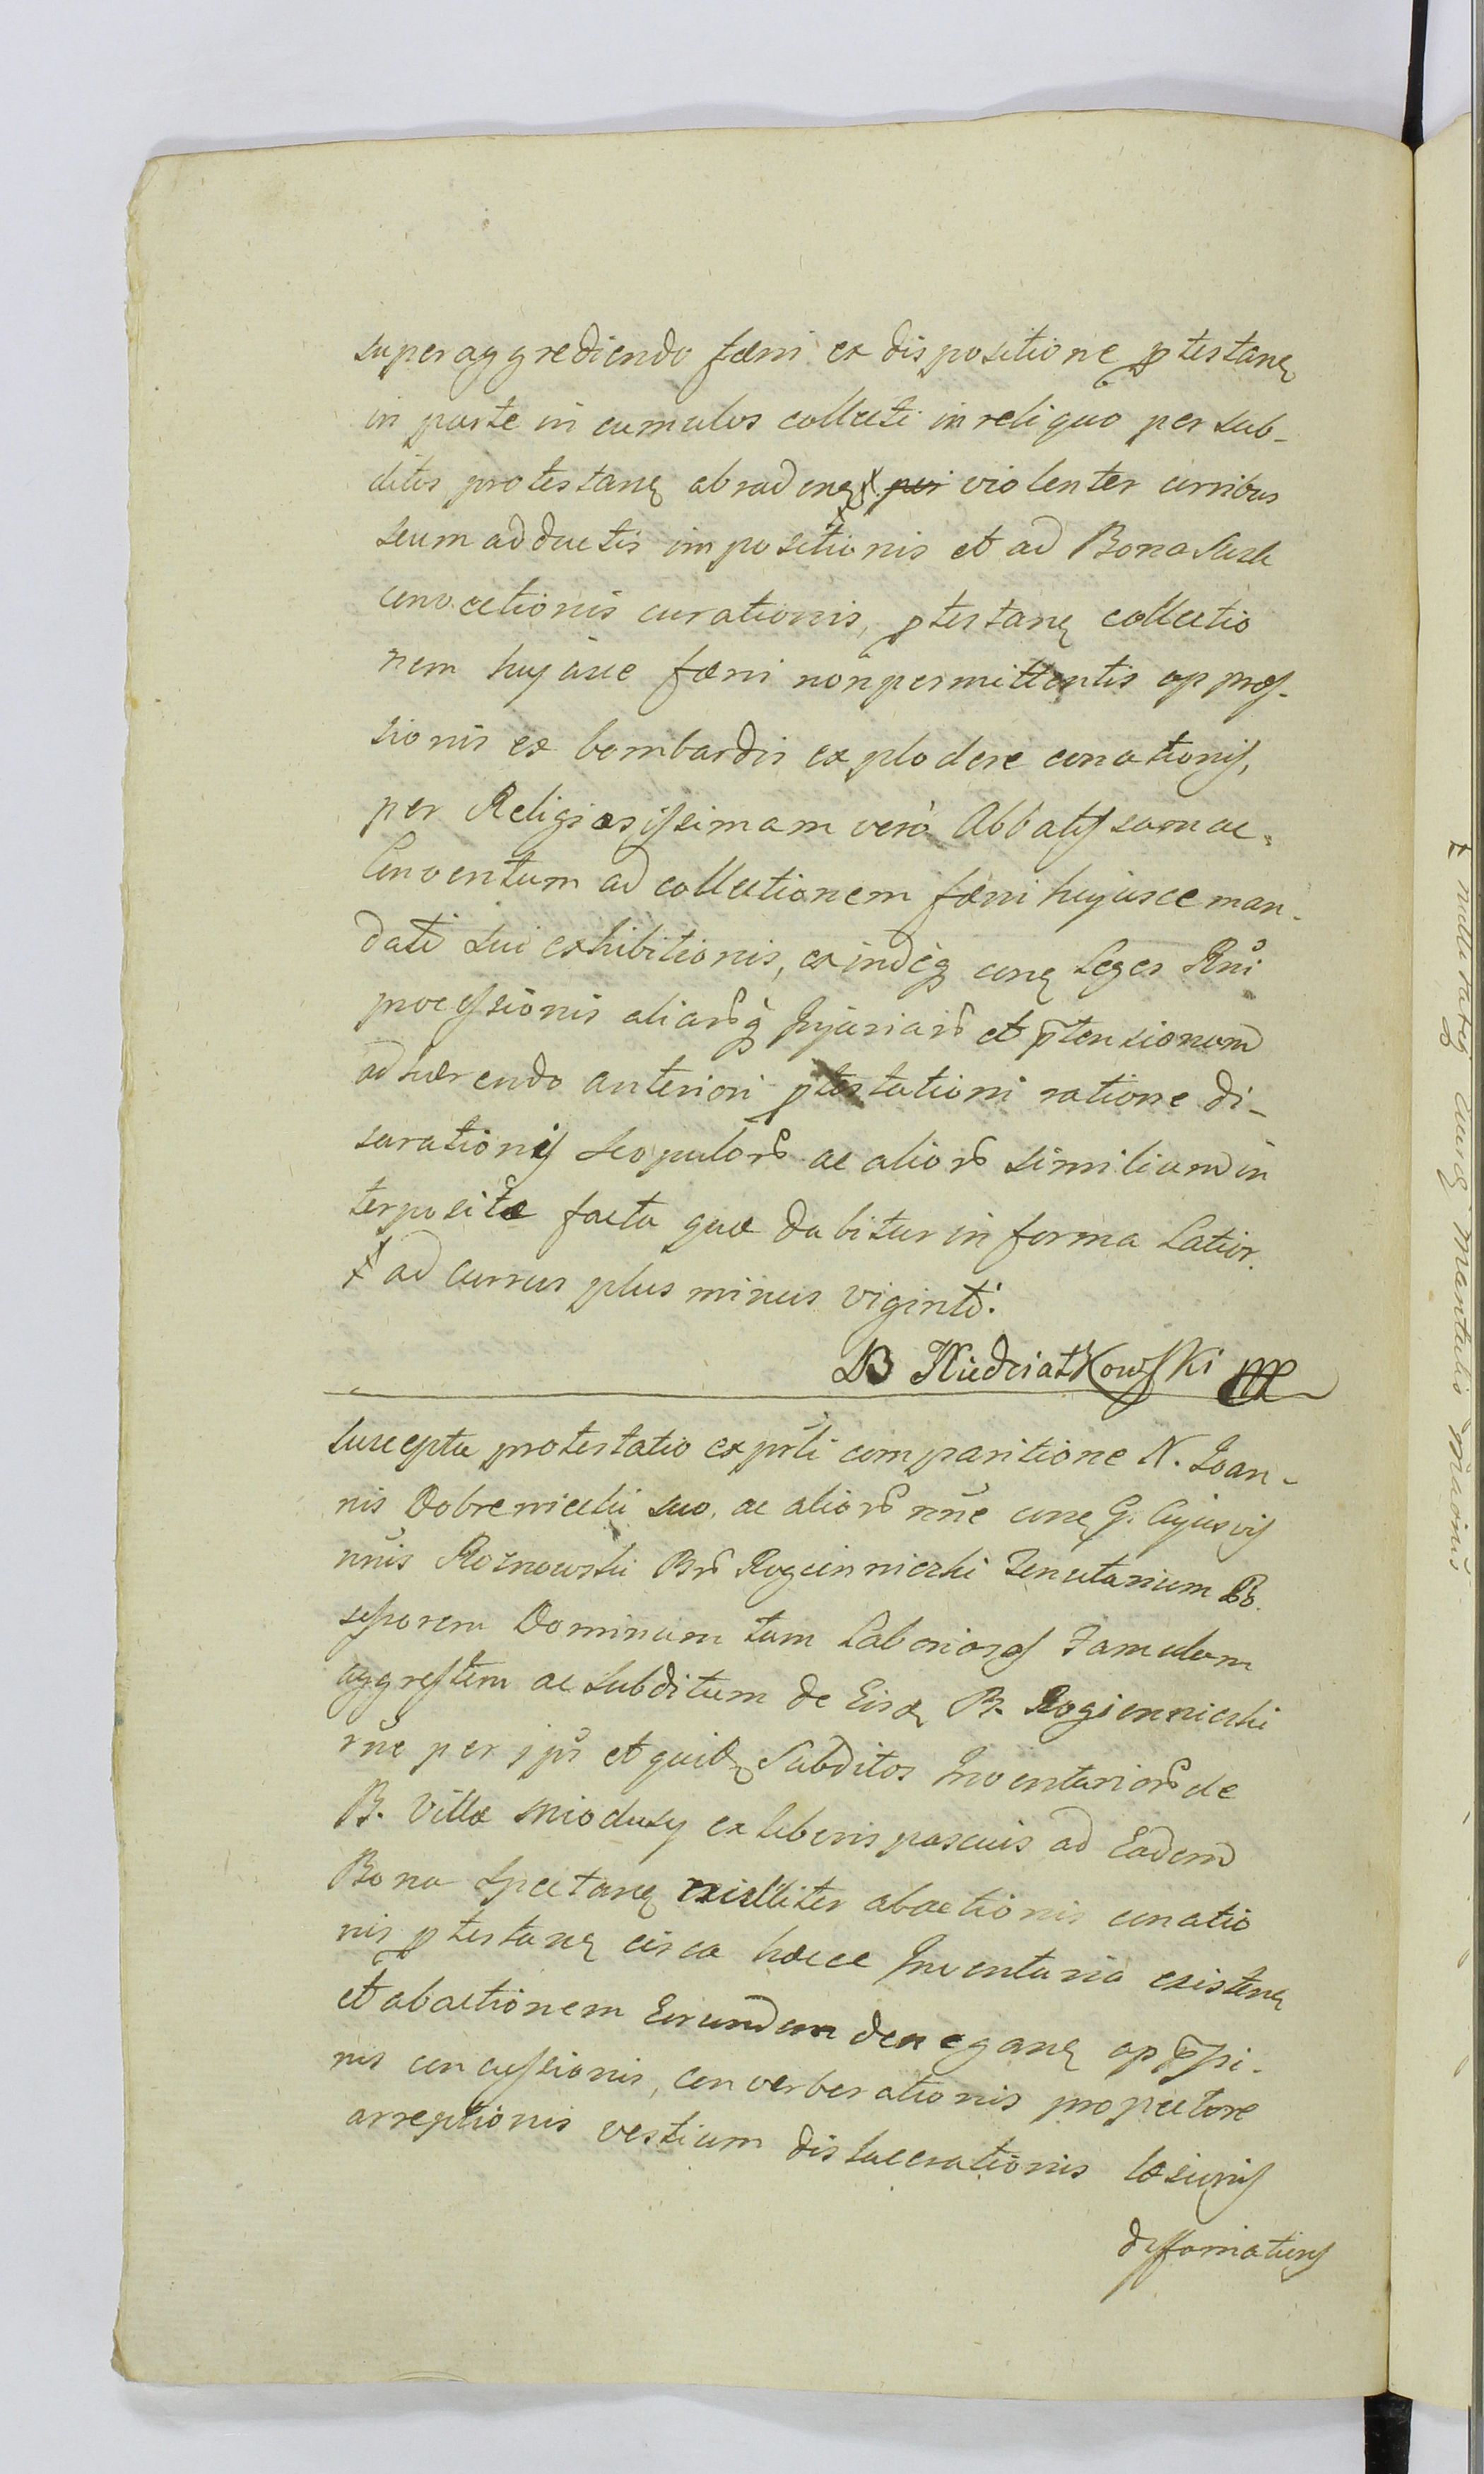 superaggrediendo fæni ex dispositione ptestanę
in parte in cumulos collecti in reliquo per sub-
ditos protestanę abradenę violenter curribus
secum adductis impositionis et ad Bona
convectionis curationis, ptestanę collectio
nem hujusce fæni non permittentis oppres-
sionis ex bombardis explodere conationis,
per Religiosissimam vero Abbatissam ac
Conventum ad collectionem fæni hujusce man-
dati sui exhibitionis, exindeq conę Leges Rni
processionis aliarq Injuriar et ptensionum
adhærendo anteriori ptestationi ratione di-
sarationis scopulor ac alior similium in
terpositæ facta quæ dabitur in forma Latior.
ad currus plus minus viginti.
B Kiedriatkowski mp
Suscepta protestatio ex pnti comparitione N. Joan-
nis Dobrenieckii suo. ac alior nne conę G. Cujusvis
nnis Roznowski Br Rogienniczki Tenutarium Po
sessorem Dominum tum Laboriosos Famulum
aggrestem ac Subditum de Eisd B. Rogienniczki
rne per ips et quidę Subditos Inventarior de
B. Villæ Miodusy ex liberis pascuis ad Eadem
Bona Spectanę abactionis conatio
nis ptestanę circa hæcce Inventaria existenę
et abactionem Eorundem denegane oppssi-
nis concussionis, converberationis pro pectore
arreptionis vestium dislacerationis læsionis
deffamationis